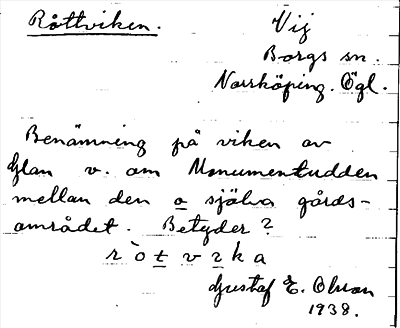 Råttviken.
Vij
Borgs sn.
Norrköping. Ögl.
Benämning på viken av
Glan v. om Monumentudden
mellan den o själva gårds-
området. Betyder?
r`otvɜka
Gustaf E. Olsson
1938.